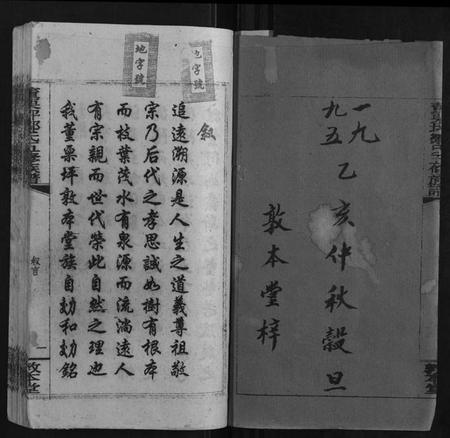 一九九五 乙亥仲秋穀旦
敦本堂梓
地字號
地字號
敘
追遠溯源是人生之道義尊祖敬
宗乃后代之孝思誠如樹有根本
而枝葉茂水有泉源而流淌遠人
有宗親而世代榮此自然之理也
我董栗坪敦本堂族自勀和勀銘
敘言
一
敦本堂
敦本堂